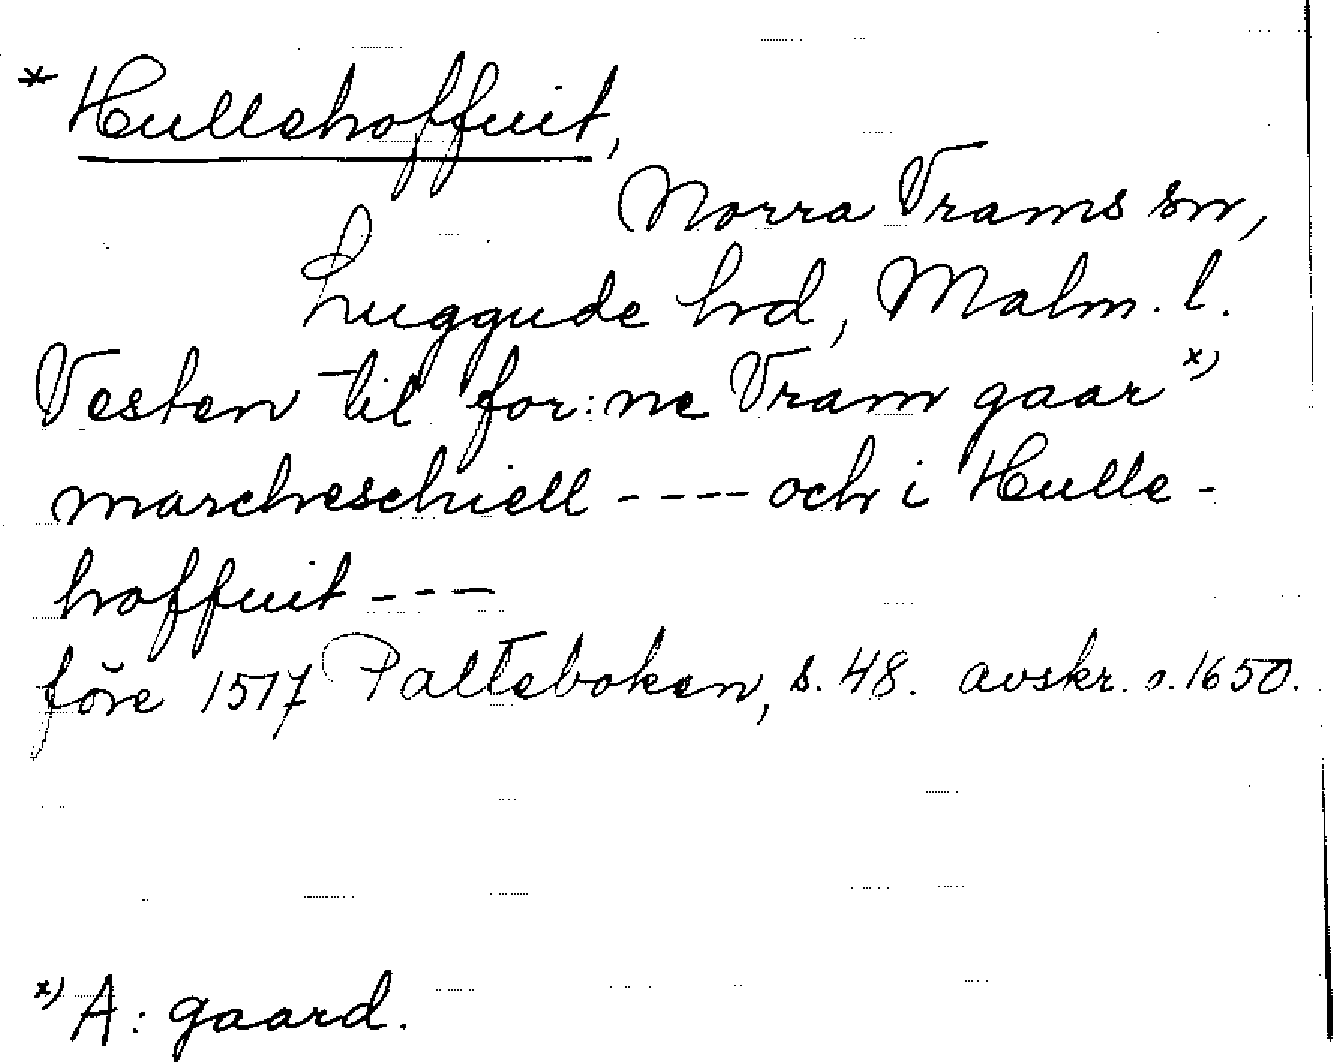 * Hullehoffuit,
Norra Vrams sn,
Luggude hd, Malm. l.
Vesten til for:ne Vram gaar x)
marcheschiell ---- och i Hulle-
hoffuit ---
före 1517 Palteboken, s. 48. avskr. o. 1650.
x) A: gaard.